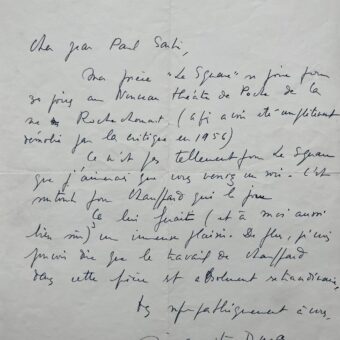 Cher Jean Paul Sartre,
Ma pièce "Le Square" se joue pour
30 jours au Nouveau théâtre de Poche de la
rue Rochechouart. (après avoir été complètement
démolie par la critique en 1956)
Ce n'est pas tellement pour Le Square
que j'aimerais que vous veniez un soir. C'est
surtout pour Chauffard qui le joue
Ça lui ferait (et à moi aussi
bien sûr) un immense plaisir. De plus, je
puis dire que le travail de Chauffard
dans cette pièce est absolument extraordinaire.
sympathiquement à vous.